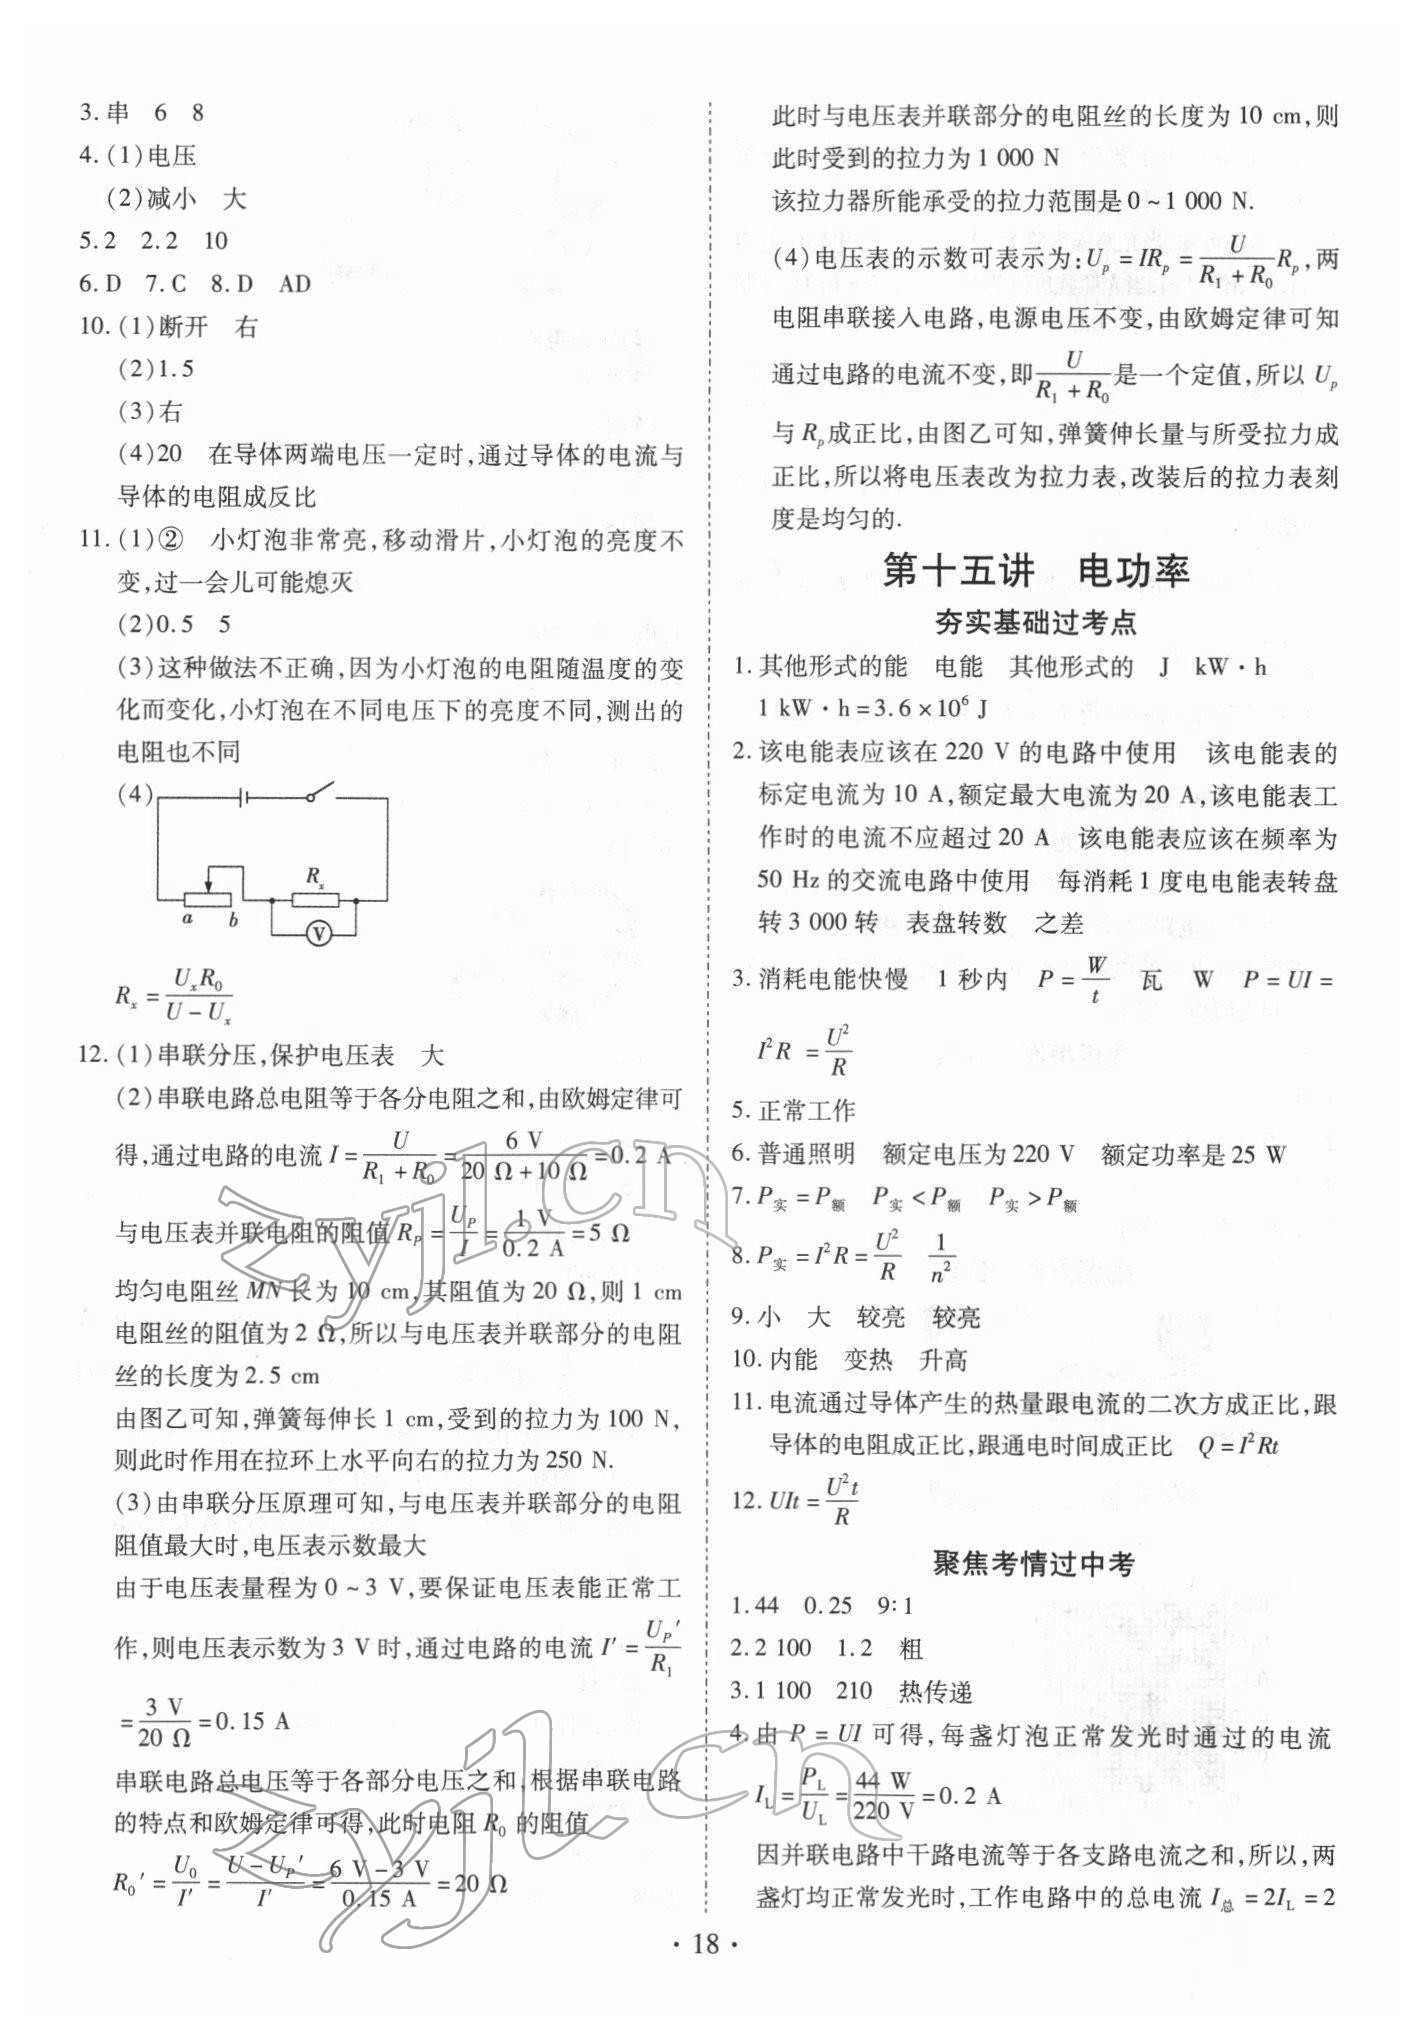 3.串　6　8
4.(1)电压
(2)减小　大
5.2　2.2　10
6.D　7.C　8.D　AD
10.(1)断开　右
(2)1.5
(3)右
(4)20　在导体两端电压一定时,通过导体的电流与
导体的电阻成反比
11.(1)②　小灯泡非常亮,移动滑片,小灯泡的亮度不
变,过一会儿可能熄灭
(2)0.5　5
(3)这种做法不正确,因为小灯泡的电阻随温度的变
化而变化,小灯泡在不同电压下的亮度不同,测出的
电阻也不同
(4)
Rₓ
a　b
V
Rₓ = UₓR₀/(U－Uₓ)
12.(1)串联分压,保护电压表　大
(2)串联电路总电阻等于各分电阻之和,由欧姆定律可
得,通过电路的电流 I = U/(R₁+R₀) = 6 V/(20 Ω+10 Ω) = 0.2 A
与电压表并联电阻的阻值 R_P = U_P/I = 1 V/0.2 A = 5 Ω
均匀电阻丝 MN 长为 10 cm,其阻值为 20 Ω,则 1 cm
电阻丝的阻值为 2 Ω,所以与电压表并联部分的电阻
丝的长度为 2.5 cm
由图乙可知,弹簧每伸长 1 cm,受到的拉力为 100 N,
则此时作用在拉环上水平向右的拉力为 250 N.
(3)由串联分压原理可知,与电压表并联部分的电阻
阻值最大时,电压表示数最大
由于电压表量程为 0~3 V,要保证电压表能正常工
作,则电压表示数为 3 V 时,通过电路的电流 I′ = U_P′/R₁
= 3 V/20 Ω = 0.15 A
串联电路总电压等于各部分电压之和,根据串联电路
的特点和欧姆定律可得,此时电阻 R₀ 的阻值
R₀′ = U₀/I′ = (U－U_P′)/I′ = (6 V－3 V)/0.15 A = 20 Ω
此时与电压表并联部分的电阻丝的长度为 10 cm,则
此时受到的拉力为 1 000 N
该拉力器所能承受的拉力范围是 0~1 000 N.
(4)电压表的示数可表示为:U_p = IR_p = U/(R₁+R₀) R_p,两
电阻串联接入电路,电源电压不变,由欧姆定律可知
通过电路的电流不变,即 U/(R₁+R₀) 是一个定值,所以 U_p
与 R_p 成正比,由图乙可知,弹簧伸长量与所受拉力成
正比,所以将电压表改为拉力表,改装后的拉力表刻
度是均匀的.
第十五讲　电功率
夯实基础过考点
1.其他形式的能　电能　其他形式的　J　kW·h
1 kW·h=3.6×10⁶ J
2.该电能表应该在 220 V 的电路中使用　该电能表的
标定电流为 10 A,额定最大电流为 20 A,该电能表工
作时的电流不应超过 20 A　该电能表应该在频率为
50 Hz 的交流电路中使用　每消耗 1 度电电能表转盘
转 3 000 转　表盘转数　之差
3.消耗电能快慢　1 秒内　P = W/t　瓦　W　P = UI =
I²R = U²/R
5.正常工作
6.普通照明　额定电压为 220 V　额定功率是 25 W
7.P实 = P额　P实 < P额　P实 > P额
8.P实 = I²R = U²/R　1/n²
9.小　大　较亮　较亮
10.内能　变热　升高
11.电流通过导体产生的热量跟电流的二次方成正比,跟
导体的电阻成正比,跟通电时间成正比　Q = I²Rt
12.UIt = U²t/R
聚焦考情过中考
1.44　0.25　9∶1
2.2 100　1.2　粗
3.1 100　210　热传递
4.由 P = UI 可得,每盏灯泡正常发光时通过的电流
I_L = P_L/U_L = 44 W/220 V = 0.2 A
因并联电路中干路电流等于各支路电流之和,所以,两
盏灯均正常发光时,工作电路中的总电流 I总 = 2I_L = 2
·18·
zyjl.cn
zyjl.cn